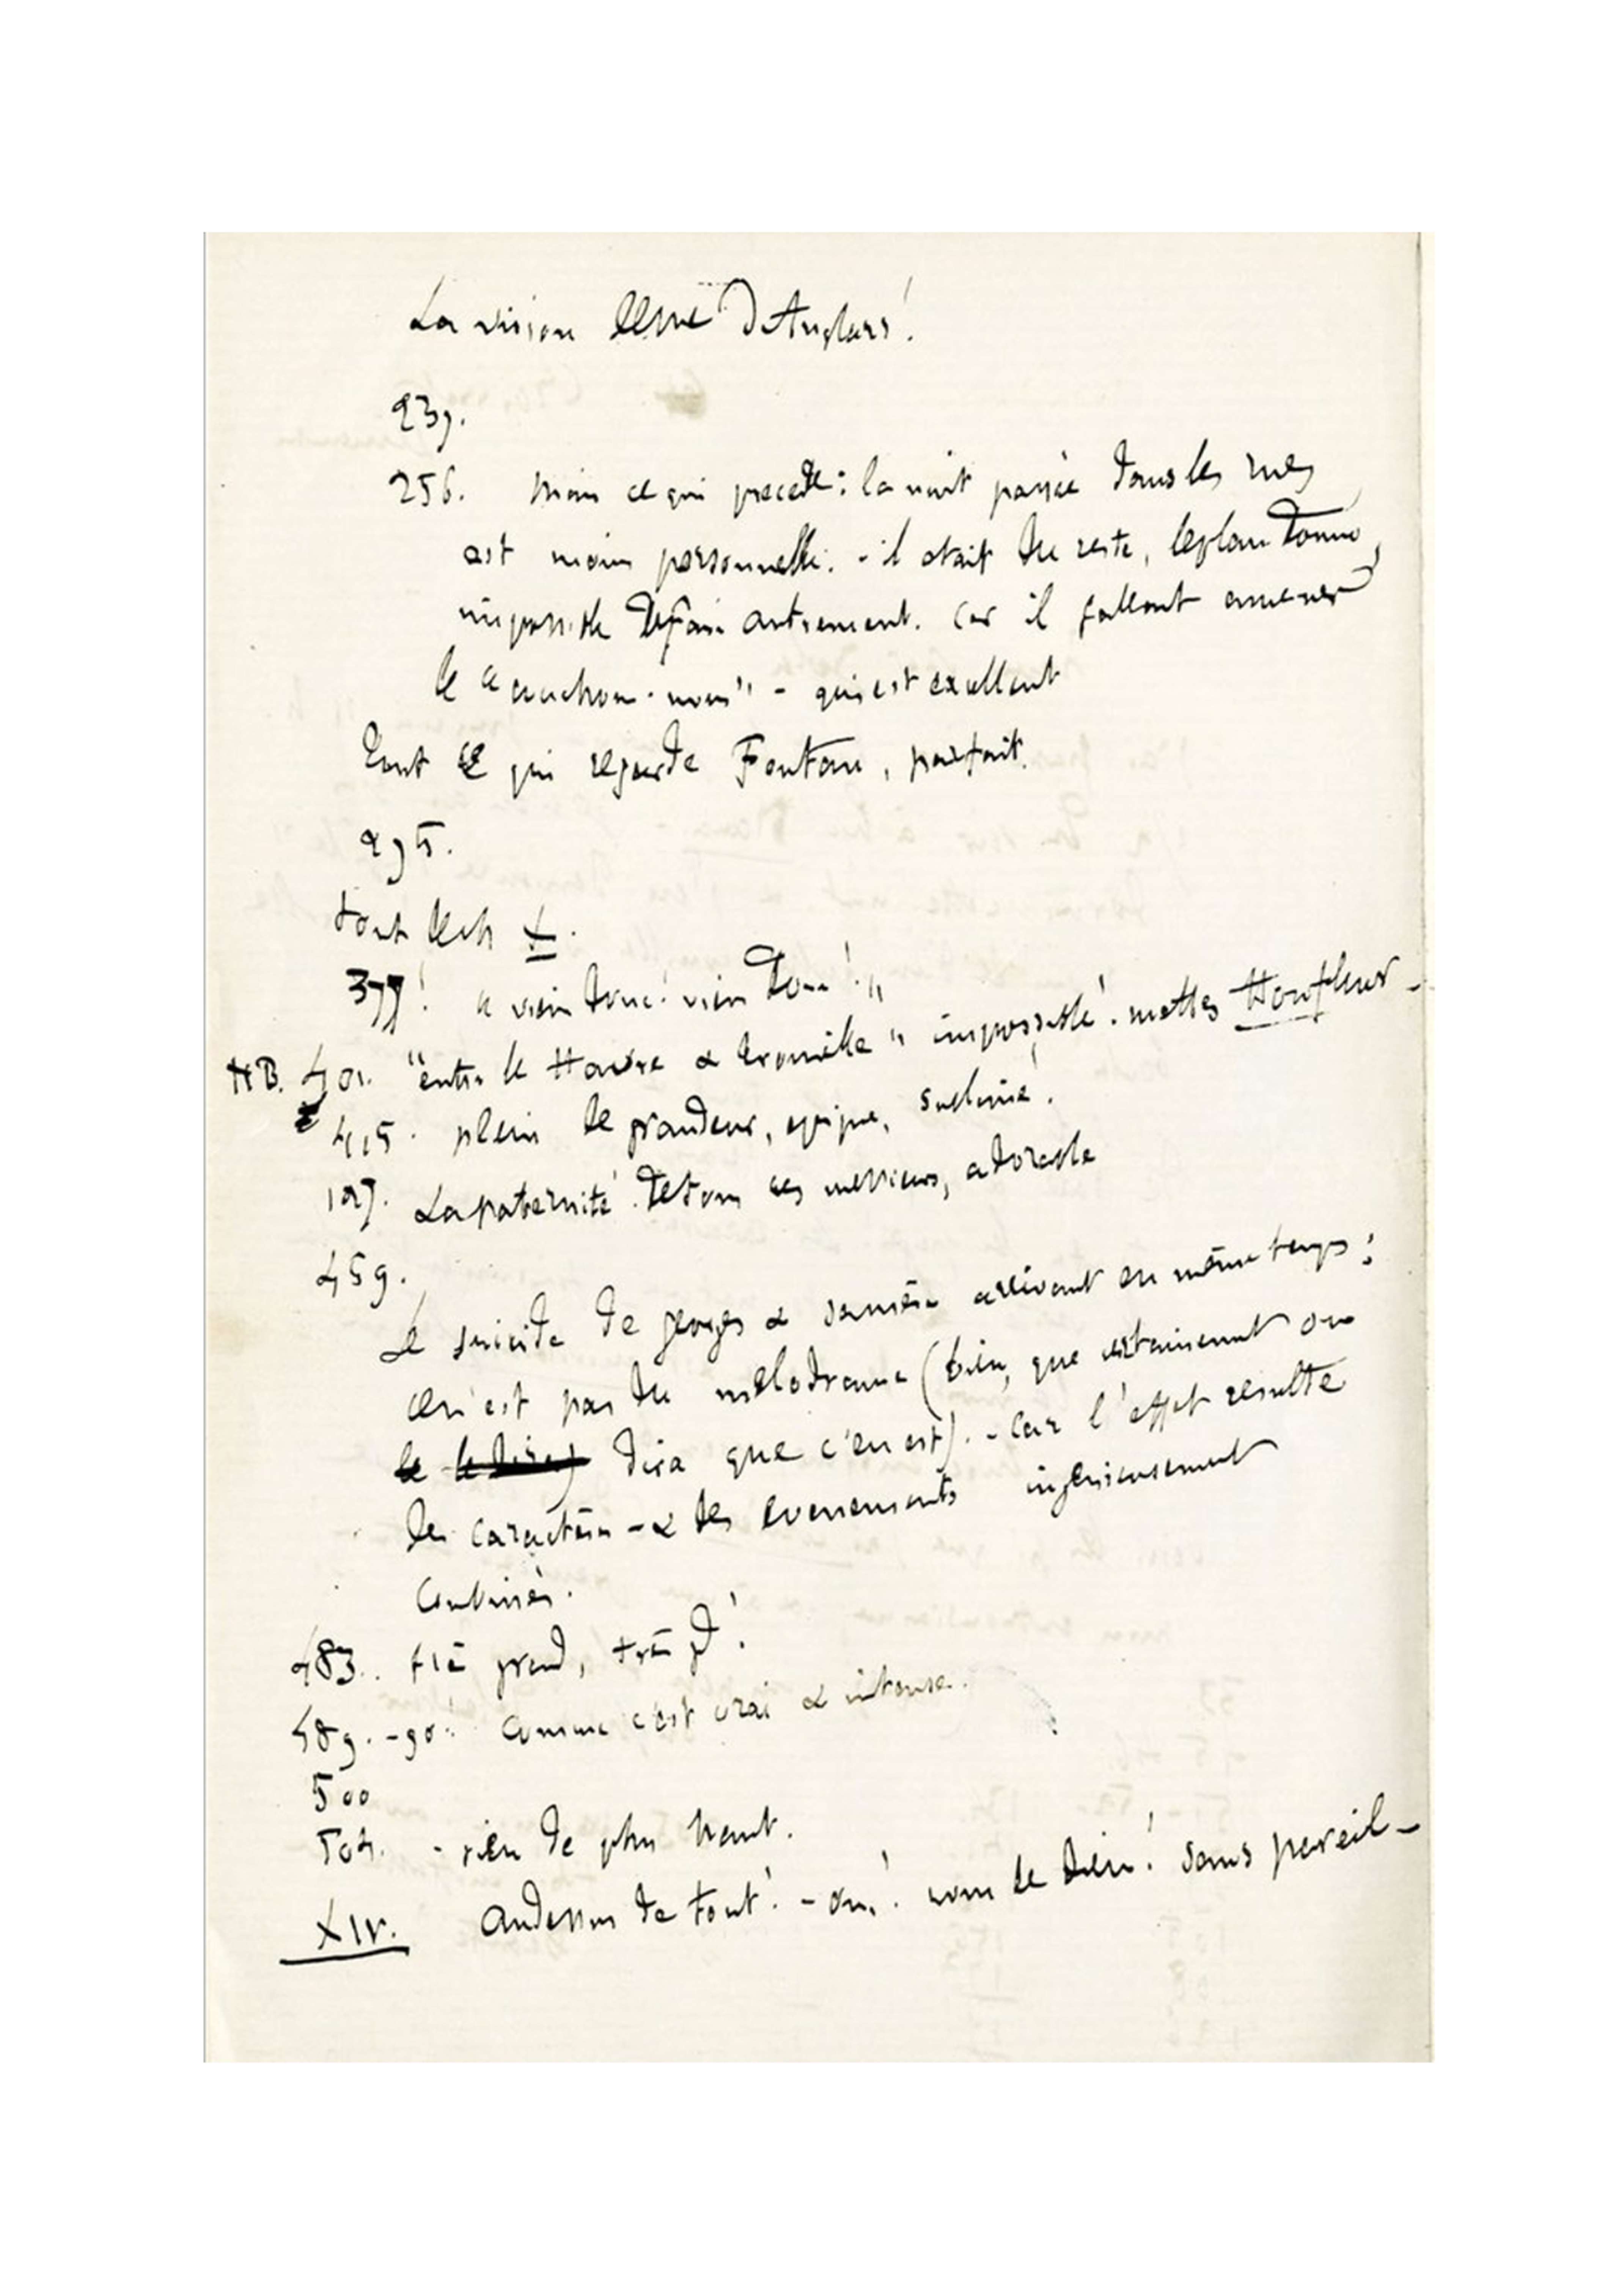 La vision de Mme d'Anglars!
239.
256. mais ce qui precede : la nuit passée dans les rues
est moins personnelle. - il etait du reste, le plan donné,
impossible de faire autrement. car il fallait amener
le « couchons-nous" - qui est excellent
Tout ce qui regarde Fontan, parfait.
295.
tout le ch X.
377! « vive donc! vive donc! "
NB. 401. "entre le Havre & Trouville " impossible! mettez Honfleur -
415. plein de grandeur, epique, sublime!
427. La paternité de tous ces messieurs, adorable
459.
Le suicide de georges & sa mère arrivant en même temps :
ce n'est pas du melodrame (bien, que certainement on
dira que c'en est). - Car l'effet resulte
des caractères - & des evenements ingenieusement
combinés.
483. très grand, très gd!
489. - 90! comme c'est vrai & intense.
500
504. - rien de plus haut.
XIV. au dessus de tout! - oui! nom de dieu! sans pareil -